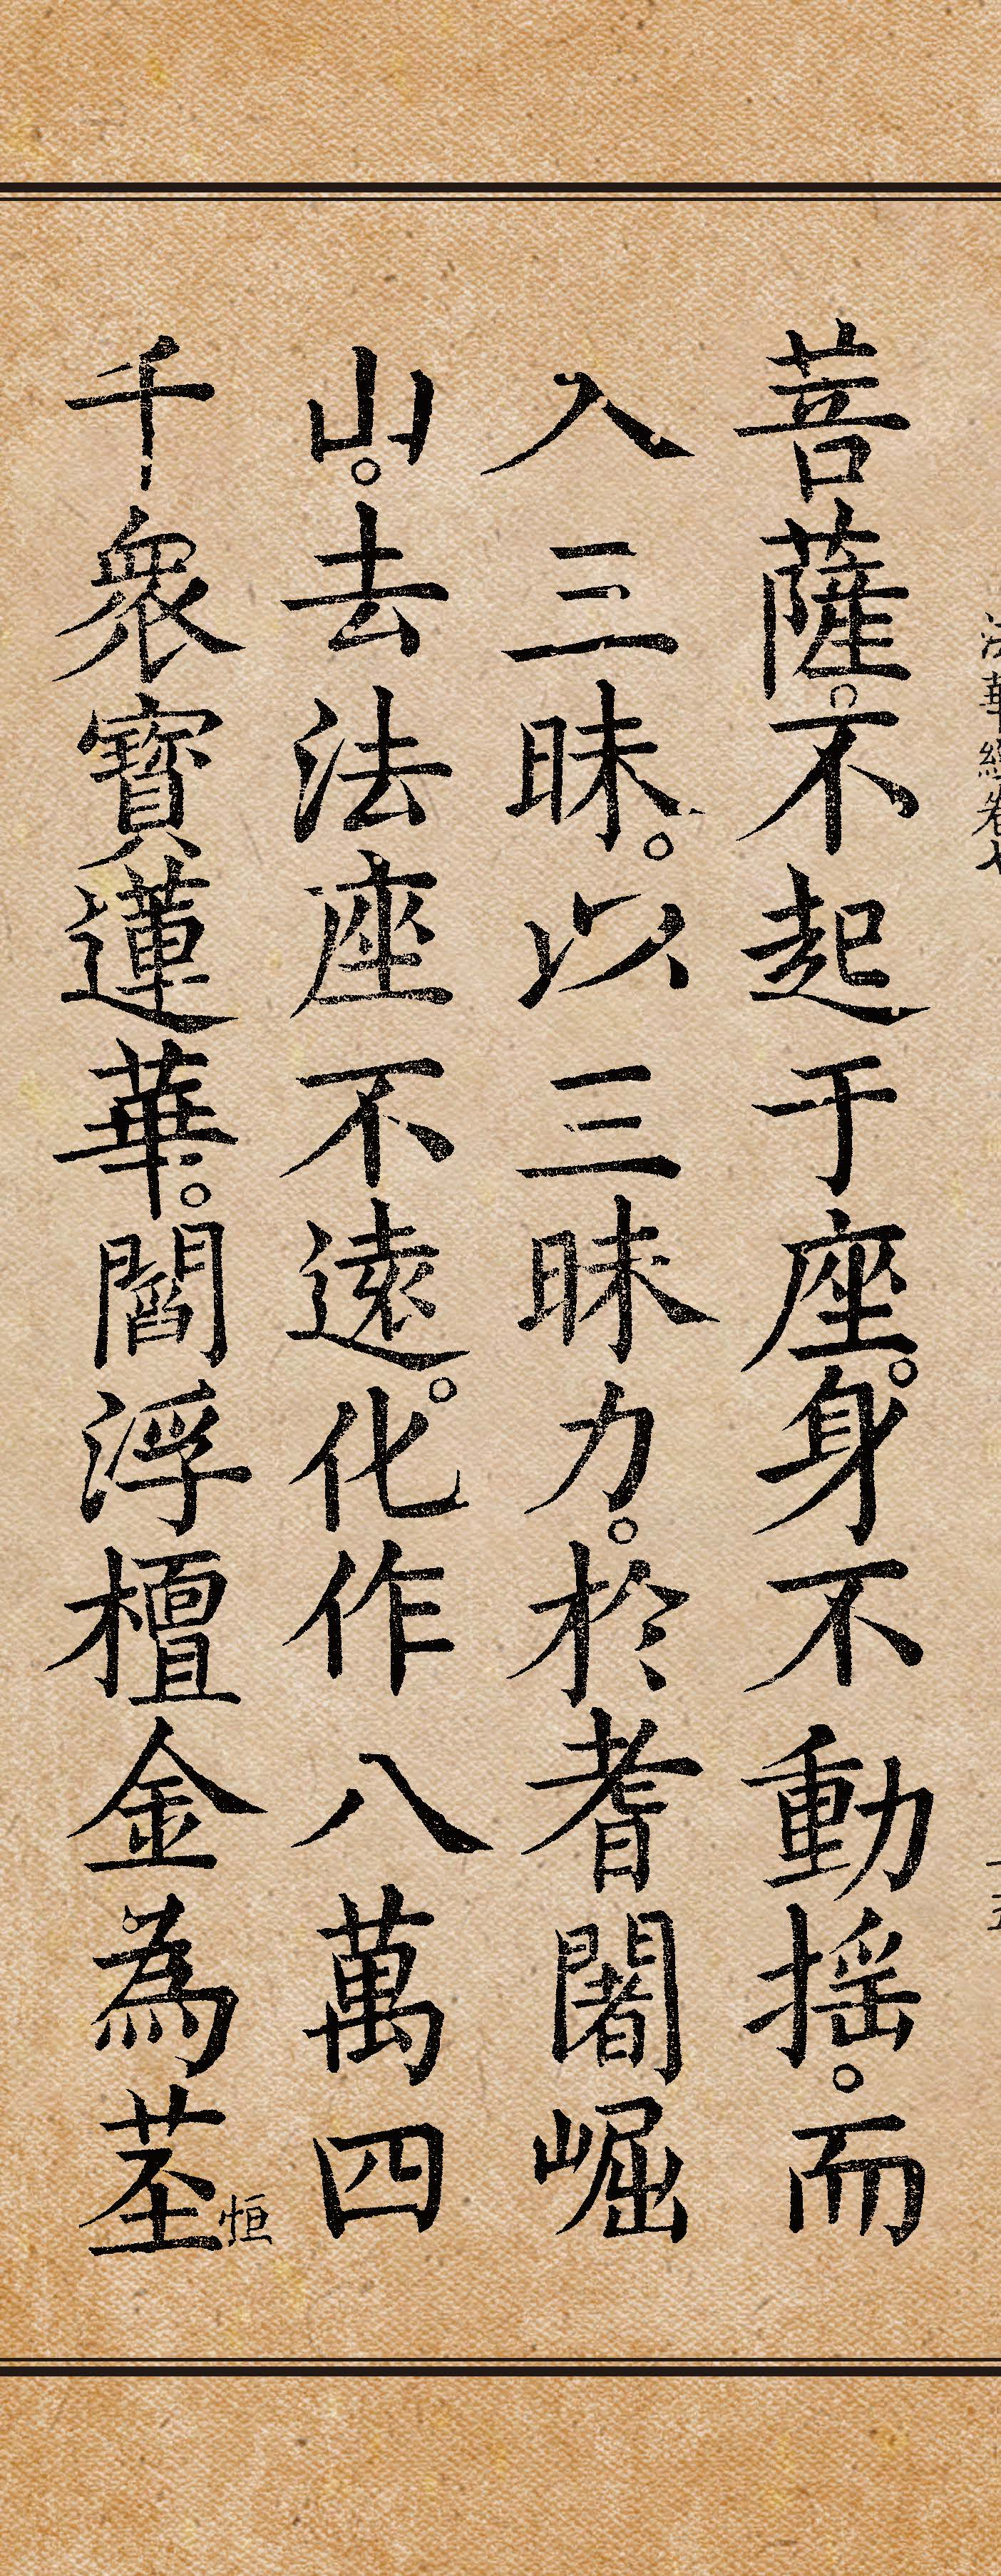 法華經卷七
菩薩。不起于座。身不動搖。而
入三昧。以三昧力。於耆闍崛
山。去法座不遠。化作八萬四
千眾寶蓮華。閻浮檀金為莖
恒